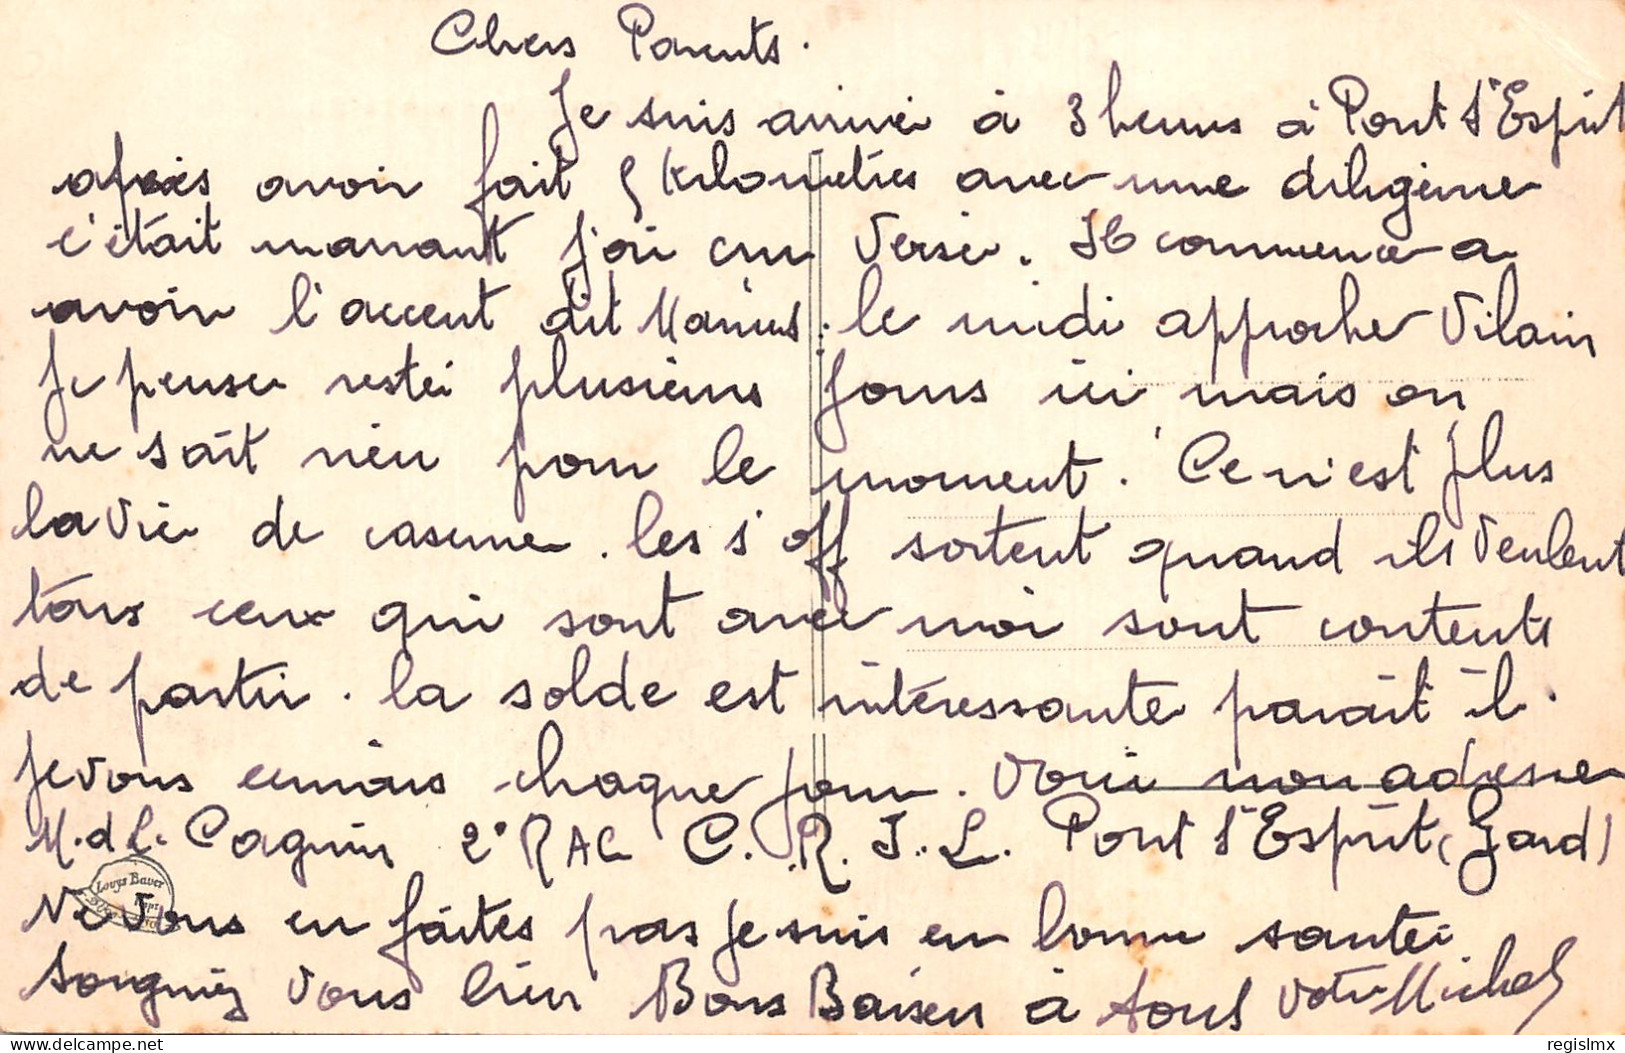 Chers Parents.
Je suis arrivé à 3 heures à Pont St Esprit
après avoir fait 5 kilomètres avec une diligence
c'était marrant j'ai cru verser. Il commence a
avoir l'accent dit Marius. le midi approche Vilain
Je pense resté plusieurs jours ici mais on
ne sait rien pour le moment. Ce n'est plus
la vie de caserne. les s' off sortent quand ils veulent
tous ceux qui sont avec moi sont contents
de partir. la solde est intéressante parait il.
Je vous écrirais chaque jour. Voici mon adresse
M. d L. Cagnin 2° RAC C. R. I. L. Pont St Esprit (Gard)
Louys Bauer
Ne vous en faites pas Je suis en bonne santé
Soignez vous bien Bons Baisers à tous Votre Michel
regislmx
delcampe.net